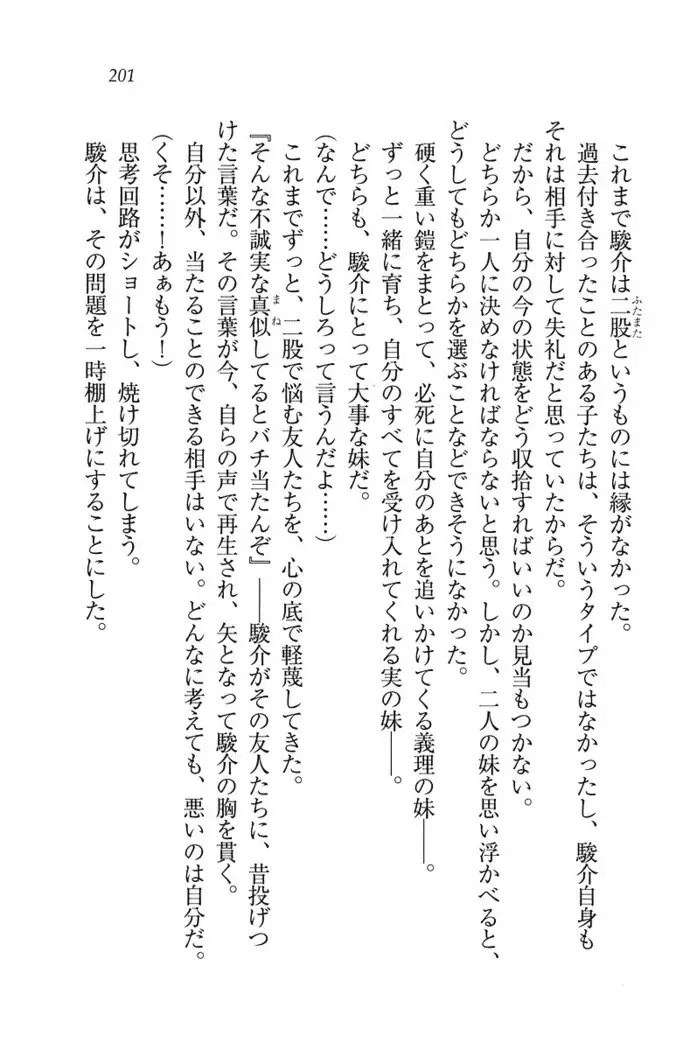 201
これまで駿介は二股というものには縁がなかった。
過去付き合ったことのある子たちは、そういうタイプではなかったし、駿介自身も
それは相手に対して失礼だと思っていたからだ。
だから、自分の今の状態をどう収拾すればいいのか見当もつかない。
どちらか一人に決めなければならないと思う。しかし、二人の妹を思い浮かべると、
どうしてもどちらかを選ぶことなどできそうになかった。
硬く重い鎧をまとって、必死に自分のあとを追いかけてくる義理の妹――。
ずっと一緒に育ち、自分のすべてを受け入れてくれる実の妹――。
どちらも、駿介にとって大事な妹だ。
(なんで……どうしろって言うんだよ……)
これまでずっと、二股で悩む友人たちを、心の底で軽蔑してきた。
『そんな不誠実な真似してるとバチ当たんぞ』――駿介がその友人たちに、昔投げつ
けた言葉だ。その言葉が今、自らの声で再生され、矢となって駿介の胸を貫く。
自分以外、当たることのできる相手はいない。どんなに考えても、悪いのは自分だ。
(くそ……！あぁもう！)
思考回路がショートし、焼け切れてしまう。
駿介は、その問題を一時棚上げにすることにした。
ふたまた
まね